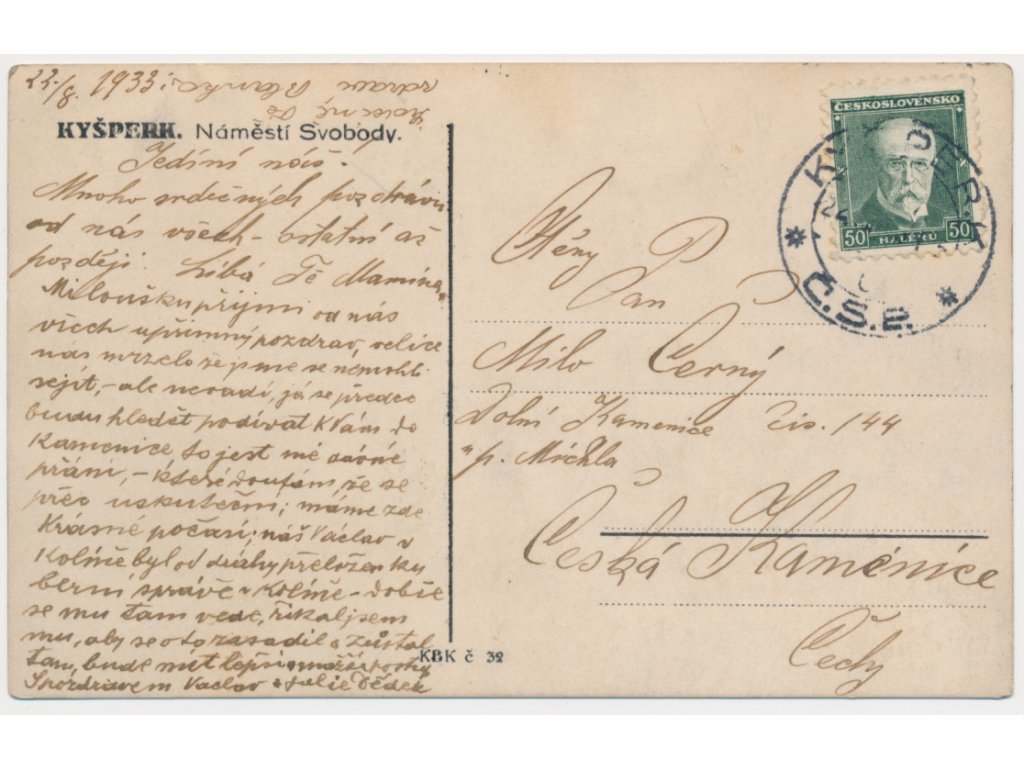 22./8. 1933.
srdečně Tě
zdraví Blanka
KYŠPERK. Náměstí Svobody.
Jediní náš!
Mnoho srdečných pozdravů
od nás všech - ostatní až
později. Líbá Tě Mamínka
Miloušku přijmi od nás
všech upřímný pozdrav, velice
nás mrzelo že jsme se nemohli
sejít, - ale nevadí, já se předce
budu hledět podívat K Vám do
Kamenice, to jest mé dávné
přání, - které doufám, že se
přec uskuteční; máme zde
Krásné počasí; náš Václav v
Kolíně byl od dráhy přeložen ku
berní správě v Kolíně - dobře
se mu tam vede, říkal jsem
mu, aby se o to zasadil a zůstal
tam, bude mít lepší
S pozdravem Václav a Julie Dědek
KBK č 32
ČESKOSLOVENSKO
50 HALÉŘŮ 50
KYŠPERK
Č.S.P.
Pan
Milo Černý
Dolní Kamenice čís. 144
"p. Michla
Česká Kamenice
Čechy